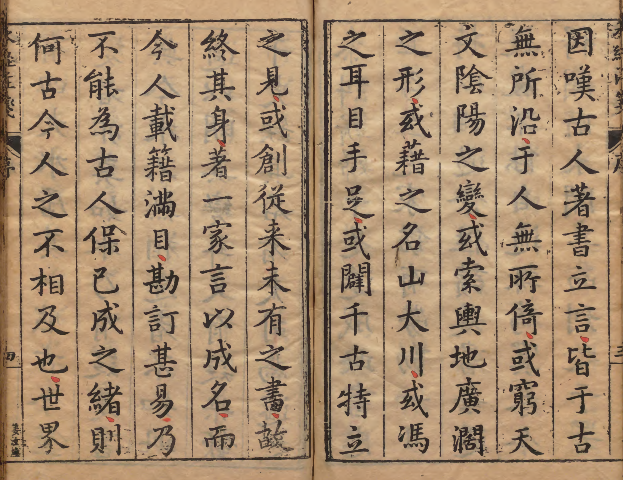 因嘆古人著書立言皆于古
無所沿于人無所倚或窮天
文陰陽之變或索輿地廣濶
之形或藉之名山大川或馮
之耳目手足或闢千古特立
之見或創從来未有之書故
終其身著一家言以成名而
今人載籍滿目勘訂甚易乃
不能為古人保已成之緒則
何古今人之不相及也世界
序